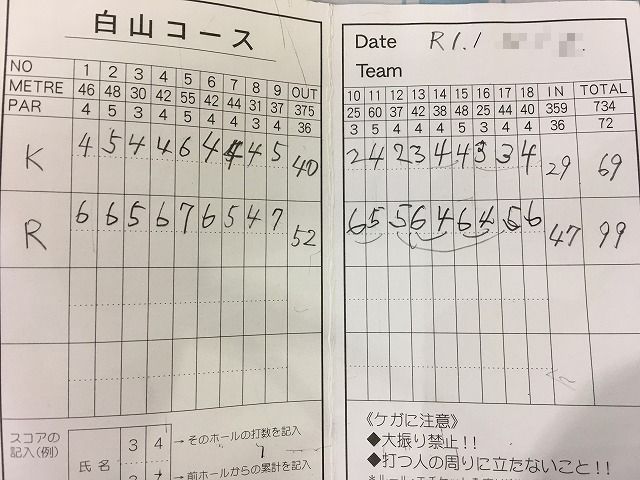 白山コース
NO 1 2 3 4 5 6 7 8 9 OUT
METRE 46 48 30 42 55 42 44 31 37 375
PAR 4 5 3 4 5 4 4 3 4 36
K 4 5 4 4 6 4 4 4 5 40
R 6 6 5 6 7 6 5 4 7 52
スコアの
記入(例)
氏名
3 4 →そのホールの打数を記入
→前ホールからの累計を記入
Date R1.1
Team
10 11 12 13 14 15 16 17 18 IN TOTAL
25 60 37 42 38 48 25 44 40 359 734
3 5 4 4 4 5 3 4 4 36 72
2 4 2 3 4 4 3 3 4 29 69
6 5 5 6 4 6 4 5 6 47 99
《ケガに注意》
◆大振り禁止!!
◆打つ人の周りに立たないこと!!